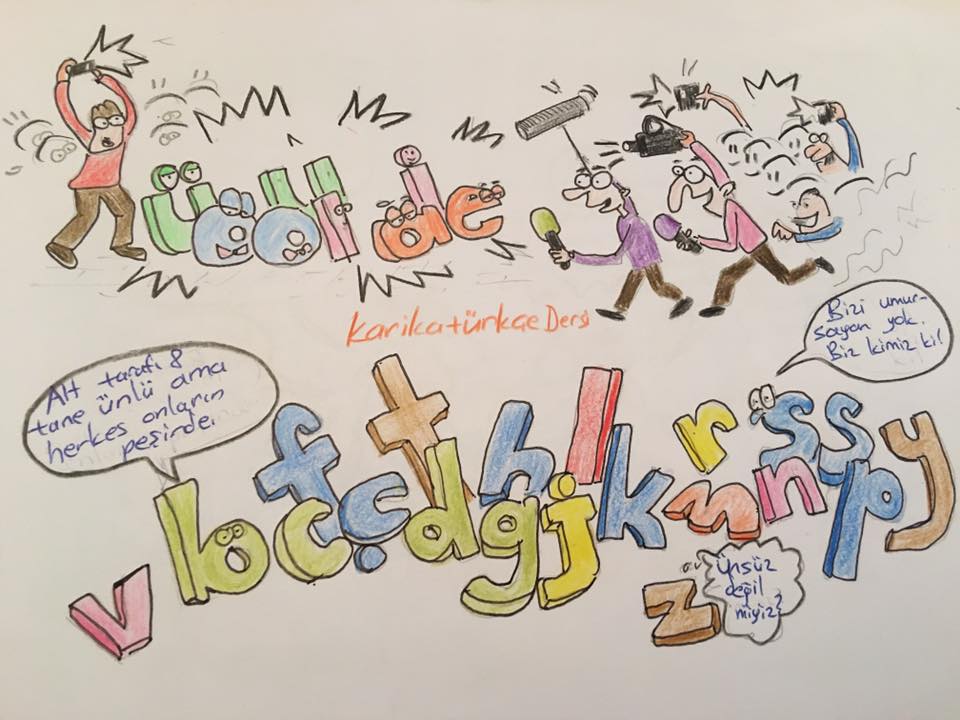 ü ö o u ı a i e
Karikatürkçe Dergi
Alt tarafı 8
tane ünlü ama
herkes onların
peşinde.
Bizi umur-
sayan yok.
Biz kimiz ki!
f t h l r s s
v b c ç d g j k m n p y
z
Ünsüz
değil
miyiz?